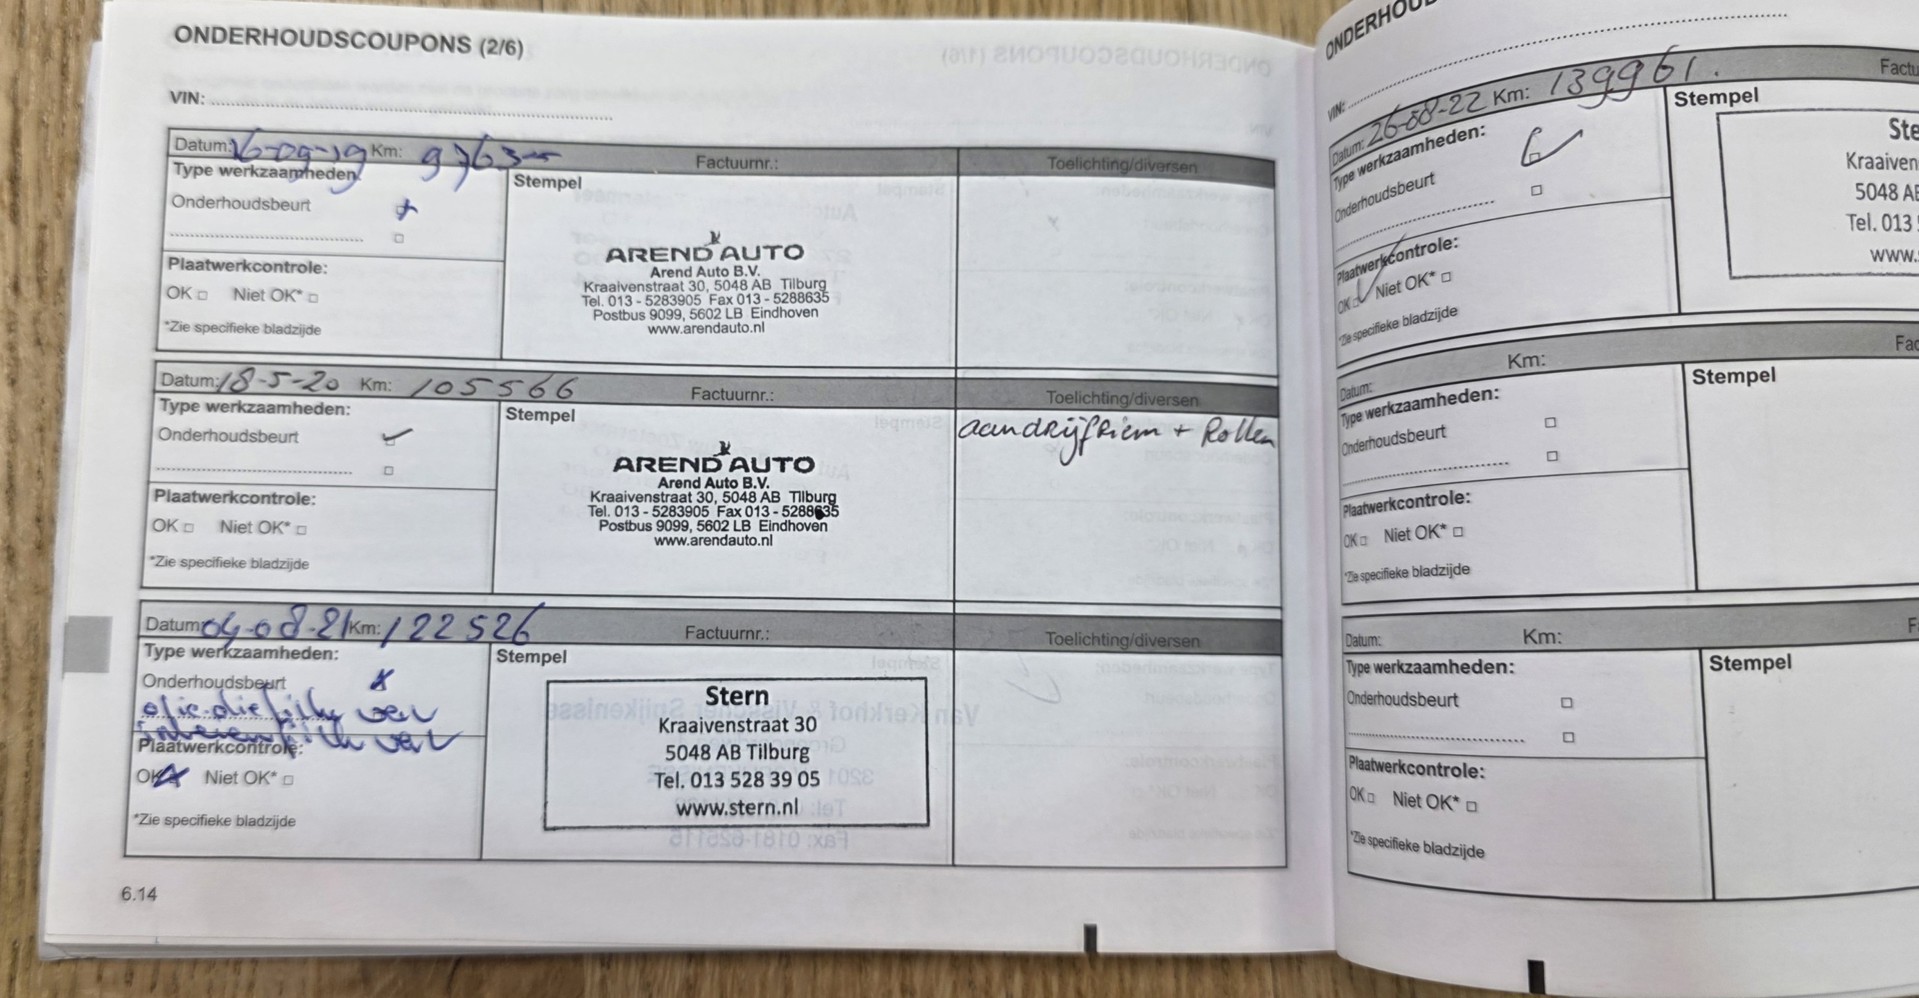 ONDERHOUDSCOUPONS (2/6)
VIN:
Datum: 16-09-19 Km: Factuurnr.: Toelichting/diversen
Type werkzaamheden:
Stempel
Onderhoudsbeurt
AREND AUTO
Arend Auto B.V.
Kraaivenstraat 30, 5048 AB Tilburg
Tel. 013 - 5283905 Fax 013 - 5288635
Postbus 9099, 5602 LB Eindhoven
www.arendauto.nl
Plaatwerkcontrole:
OK Niet OK*
*Zie specifieke bladzijde
Datum: 18-5-20 Km: 105566 Factuurnr.: Toelichting/diversen
Type werkzaamheden:
Stempel
aandrijfriem + Rollen
Onderhoudsbeurt
AREND AUTO
Arend Auto B.V.
Kraaivenstraat 30, 5048 AB Tilburg
Tel. 013 - 5283905 Fax 013 - 5288635
Postbus 9099, 5602 LB Eindhoven
www.arendauto.nl
Plaatwerkcontrole:
OK Niet OK*
*Zie specifieke bladzijde
Datum: 04-08-21 Km: 122526 Factuurnr.: Toelichting/diversen
Type werkzaamheden:
Stempel
Onderhoudsbeurt
Stern
Kraaivenstraat 30
5048 AB Tilburg
Tel. 013 528 39 05
www.stern.nl
Plaatwerkcontrole:
OK Niet OK*
*Zie specifieke bladzijde
6.14
VIN:
Datum: 26-08-22 Km: 139961.
Type werkzaamheden:
Stempel
Onderhoudsbeurt
5048
Tel. 013
www.
Plaatwerkcontrole:
OK Niet OK*
*Zie specifieke bladzijde
Datum: Km:
Type werkzaamheden:
Stempel
Onderhoudsbeurt
Plaatwerkcontrole:
OK Niet OK*
*Zie specifieke bladzijde
Datum: Km:
Type werkzaamheden:
Stempel
Onderhoudsbeurt
Plaatwerkcontrole:
OK Niet OK*
*Zie specifieke bladzijde